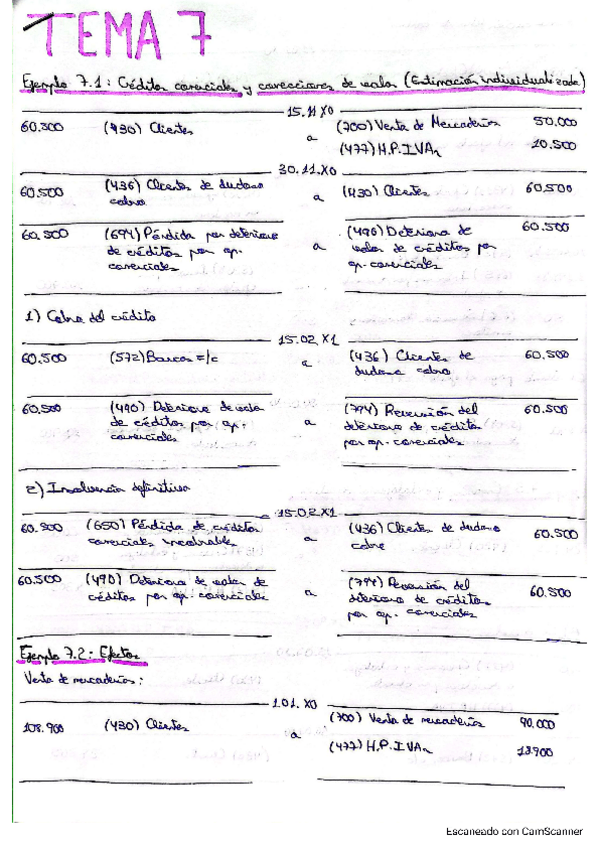 TEMA 7
Ejemplo 7.1: Créditos comerciales y correcciones de valor (Estimación individualizada)
15.11.X0
60.500 (430) Clientes a (700) Venta de Mercaderías 50.000
(477) H.P. IVAr 10.500
30.11.X0
60.500 (436) Clientes de dudoso cobro a (430) Clientes 60.500
60.500 (694) Pérdida por deterioro a (490) Deterioro de 60.500
de créditos por op. valor de créditos por
comerciales op. comerciales
1) Cobro del crédito
15.02.X1
60.500 (572) Bancos c/c a (436) Clientes de 60.500
dudoso cobro
60.500 (490) Deterioro de valor a (794) Reversión del 60.500
de créditos por op. deterioro de créditos
comerciales por op. comerciales
2) Insolvencia definitiva
15.02.X1
60.500 (650) Pérdida de créditos a (436) Clientes de dudoso 60.500
comerciales incobrables cobro
60.500 (490) Deterioro de valor de a (794) Reversión del 60.500
créditos por op. comerciales deterioro de créditos
por op. comerciales
Ejemplo 7.2: Efectos
Venta de mercaderías:
1.01.X0
108.900 (430) Clientes a (700) Venta de mercaderías 90.000
(477) H.P. IVAr 18.900
Escaneado con CamScanner